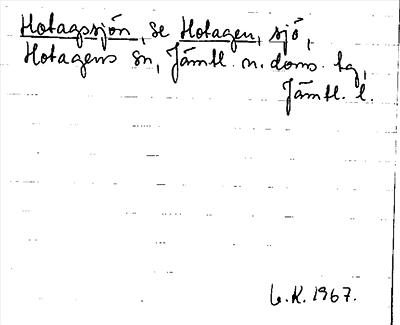 Hotagssjön, se Hotagen, sjö,
Hotagens sn, Jämtl. n. doms. tg,
Jämtl. l.
L.K. 1967.